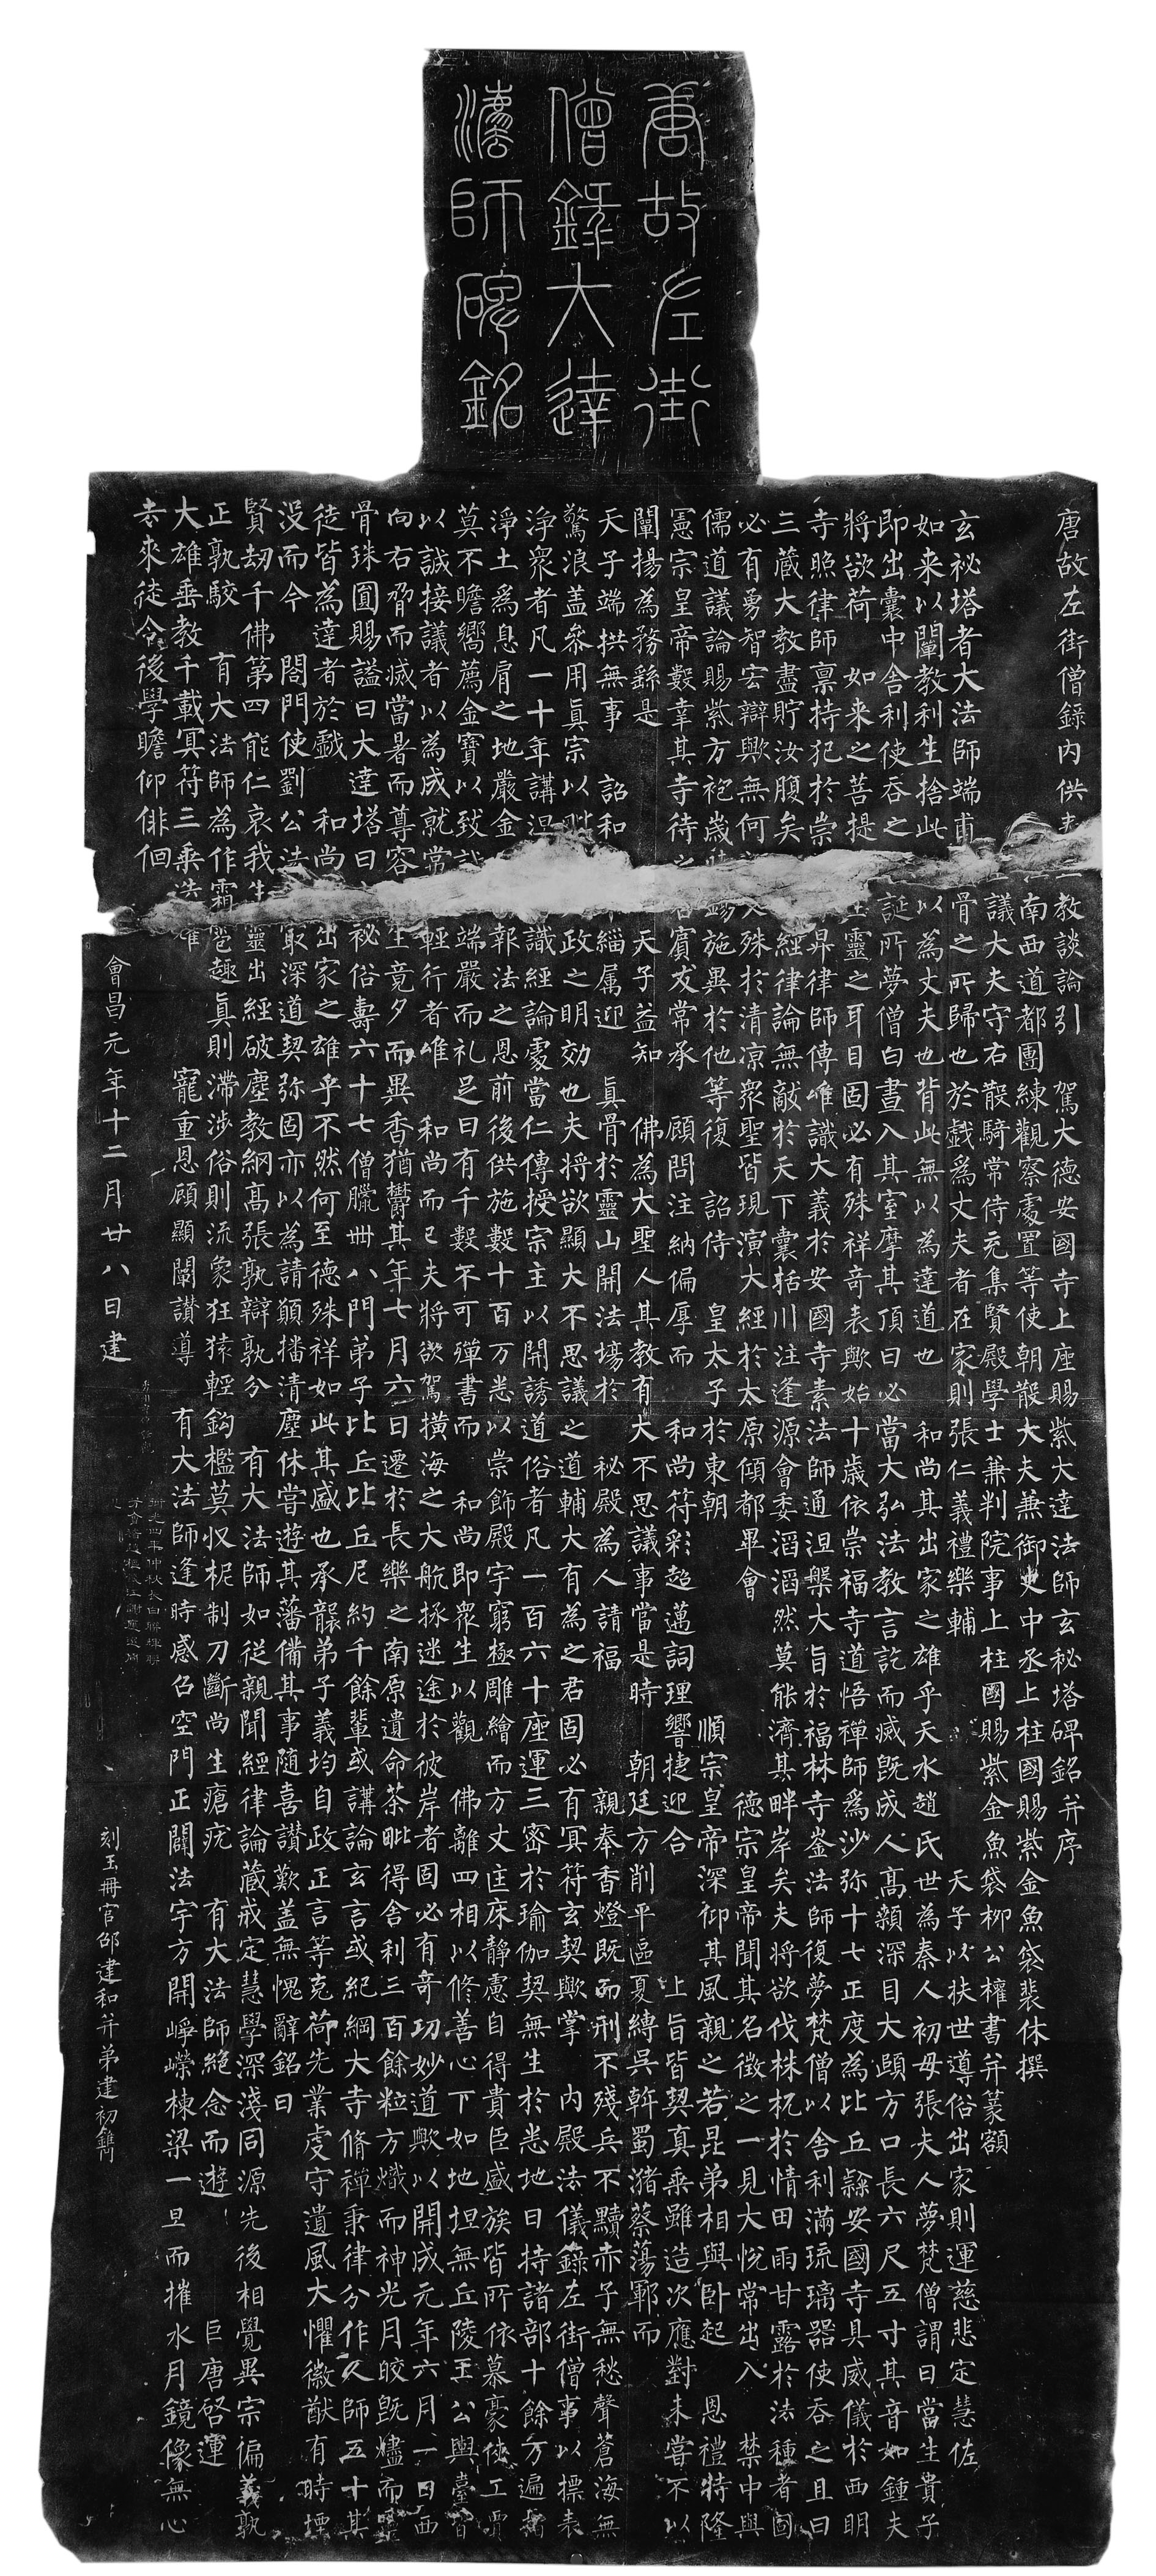 唐故左街
僧錄大達
法師碑銘
唐故左街僧錄內供 教談論引 駕大德安國寺上座賜紫大達法師玄秘塔碑銘并序
南西道都團練觀察處置等使朝散大夫兼御史中丞上柱國賜紫金魚袋裴休撰
議大夫守右散騎常侍充集賢殿學士兼判院事上柱國賜紫金魚袋柳公權書并篆額
玄祕塔者大法師端甫 骨之所歸也於戲為丈夫者在家則張仁義禮樂輔 天子以扶世導俗出家則運慈悲定慧佐
如来以闡教利生捨此 以為丈夫也背此無以為達道也 和尚其出家之雄乎天水趙氏世為秦人初母張夫人夢梵僧謂曰當生貴子
即出囊中舍利使吞之 誕所夢僧白晝入其室摩其頂曰必當大弘法教言訖而滅既成人高顙深目大頤方口長六尺五寸其音如鍾夫
將欲荷 如来之菩提 靈之耳目固必有殊祥奇表歟始十歲依崇福寺道悟禪師為沙弥十七正度為比丘隸安國寺具威儀於西明
寺照律師稟持犯於崇 昇律師傳唯識大義於安國寺素法師通涅槃大旨於福林寺崟法師復夢梵僧以舍利滿琉璃器使吞之且曰
三藏大教盡貯汝腹矣 經律論無敵於天下囊括川注逢源會委滔滔然莫能濟其畔岸矣夫將欲伐株杌於情田雨甘露於法種者固
必有勇智宏辯歟無何 殊於清涼衆聖皆現演大經於太原傾都畢會 德宗皇帝聞其名徵之一見大悅常出入 禁中與
儒道議論賜紫方袍歲時錫施異於他等復 詔侍 皇太子於東朝 順宗皇帝深仰其風親之若昆弟相與卧起 恩禮特隆
憲宗皇帝數幸其寺待之 賓友常承 顧問注納偏厚而 和尚符彩超邁詞理響捷迎合 上旨皆契真乘雖造次應對未嘗不以
闡揚為務繇是 天子益知 佛為大聖人其教有大不思議事當是時 朝廷方削平區夏縛吳斡蜀瀦蔡蕩鄆而
天子端拱無事 詔和 緇属迎 真骨於靈山開法場於 秘殿為人請福 親奉香燈既而刑不殘兵不黷赤子無愁聲蒼海無
驚浪蓋參用真宗以 政之明効也夫將欲顯大不思議之道輔大有為之君固必有冥符玄契歟掌 內殿法儀錄左街僧事以摽表
淨衆者凡一十年講涅 識經論處當仁傳授宗主以開誘道俗者凡一百六十座運三密於瑜伽契無生於悉地日持諸部十餘万遍指
淨土為息肩之地嚴金 報法之恩前後供施數十百万悉以崇飾殿宇窮極雕繪而方丈匡床靜慮自得貴臣盛族皆所依慕豪俠工賈
莫不瞻嚮薦金寶以致 端嚴而礼足日有千數不可殫書而 和尚即衆生以觀 佛離四相以修善心下如地坦無丘陵王公輿臺皆
以誠接議者以為成就常 輕行者唯 和尚而已夫將欲駕橫海之大航拯迷途於彼岸者固必有奇功妙道歟以開成元年六月一日西
向右脅而滅當暑而尊容 生竟夕而異香猶欝其年七月六日遷於長樂之南原遺命茶毗得舍利三百餘粒方熾而神光月皎既燼而靈
骨珠圓賜謚曰大達塔曰 秘俗壽六十七僧臘卌八門弟子比丘比丘尼約千餘輩或講論玄言或紀綱大寺脩禪秉律分作人師五十其
徒皆為達者於戲 和尚出家之雄乎不然何至德殊祥如此其盛也承襲弟子義均自政正言等克荷先業虔守遺風大懼徽猷有時堙
沒而今 閤門使劉公法 最深道契弥固亦以為請願播清塵休嘗遊其藩備其事隨喜讚歎蓋無愧辭銘曰
賢劫千佛第四能仁哀我生靈出經破塵教綱高張孰辯孰分 有大法師如從親聞經律論藏戒定慧學深淺同源先後相覺異宗偏義孰
正孰駁 有大法師為作霜雹趣真則滯涉俗則流象狂猿輕鈎檻莫收柅制刀斷尚生瘡疣 有大法師絕念而遊 巨唐啓運
大雄垂教千載冥符三乘 寵重恩顧顯闡讚導 有大法師逢時感召空門正闢法宇方開崢嶸棟梁一旦而摧水月鏡像無心
去來徒令後學瞻仰俳佪
會昌元年十二月廿八日建 刻玉冊官邵建和并弟建初鐫